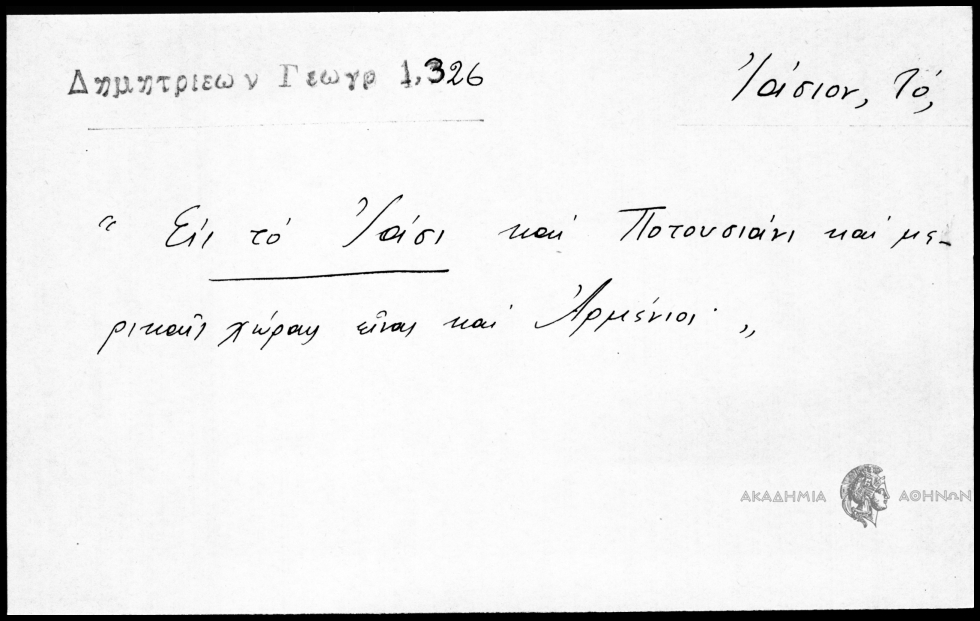 Δημητριεων Γεωγρ 1,326
Ἰάσιον, τό,
“ Εἰς τό Ἰάσι καί Ποτουσιάνι καί με-
ρικαῖς χώραις εἶναι καί Ἀρμένιοι· „
ΑΚΑΔΗΜΙΑ ΑΘΗΝΩΝ